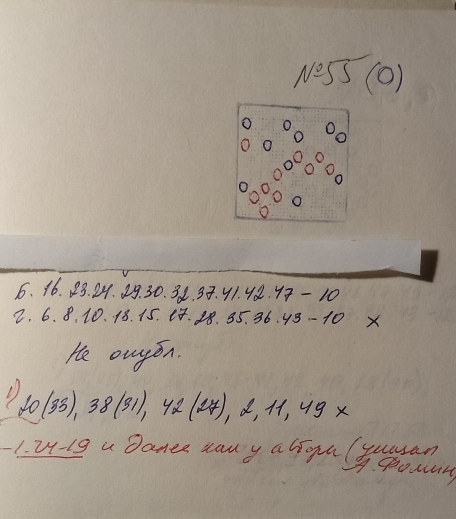 №55 (0)
Б. 16. 23. 24. 29. 30. 32. 37. 41. 42. 47 – 10
Ч. 6. 8. 10. 13. 15. 17. 28. 35. 36. 43 – 10 x
Не опубл.
1) 20 (33), 38 (31), 42 (27), 2, 11, 49 x
-1. 24-19 и далее как у автора (указал
А. Фомин)